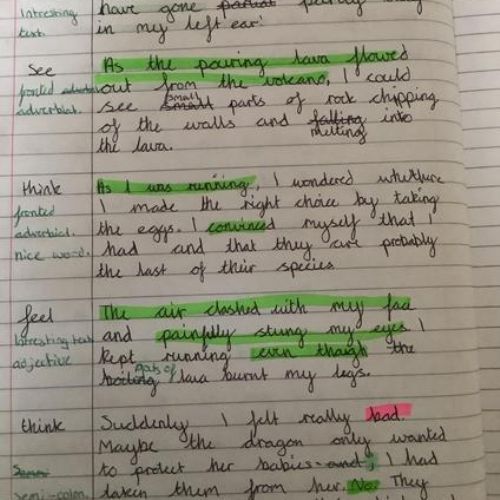 Intresting have gone partial partly deaf
text. in my left ear!
see As the pouring lava flowed
fronted adverbial out from the volcano, I could
adverbial. see small small parts of rock chipping
of the walls and falling melting into
the lava.
think As I was running, I wondered whethere
fronted I made the right choice by taking
adverbial. the eggs. I convinced myself that I
nice word. had and that they are probably
the last of their species
feel The air clashed with my face
Intresting text and painfully stung my eyes I
adjective kept running even though the
boiling pots of lava burnt my legs.
think Suddenly I felt really bad.
Maybe the dragon only wanted
to protect her babies and ; I had
semi-colon. taken them from her. No. They